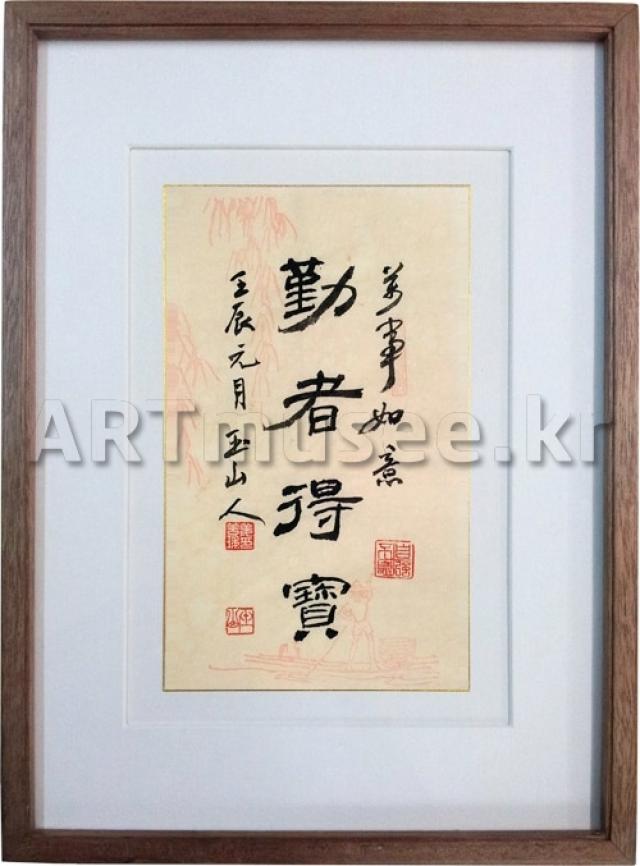 萬事如意
勤者得寶
壬辰元月 玉山人
ARTmusee.kr